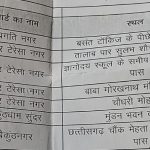 र्ड का नाम स्थल
गति नगर बसंत टॉकिज के पीछे
टेरेसा नगर तालाब पार सुलभ शौ
टेरेसा नगर ज्ञानोदय स्कूल के समीप
पास
टेरेसा नगर बाबा गोरखनाथ म
टेरेसा नगर चौधरी मोह
सुंदर मुंडन भवन
कुंठनगर छत्तीसगढ़ चौक मेहता
पास